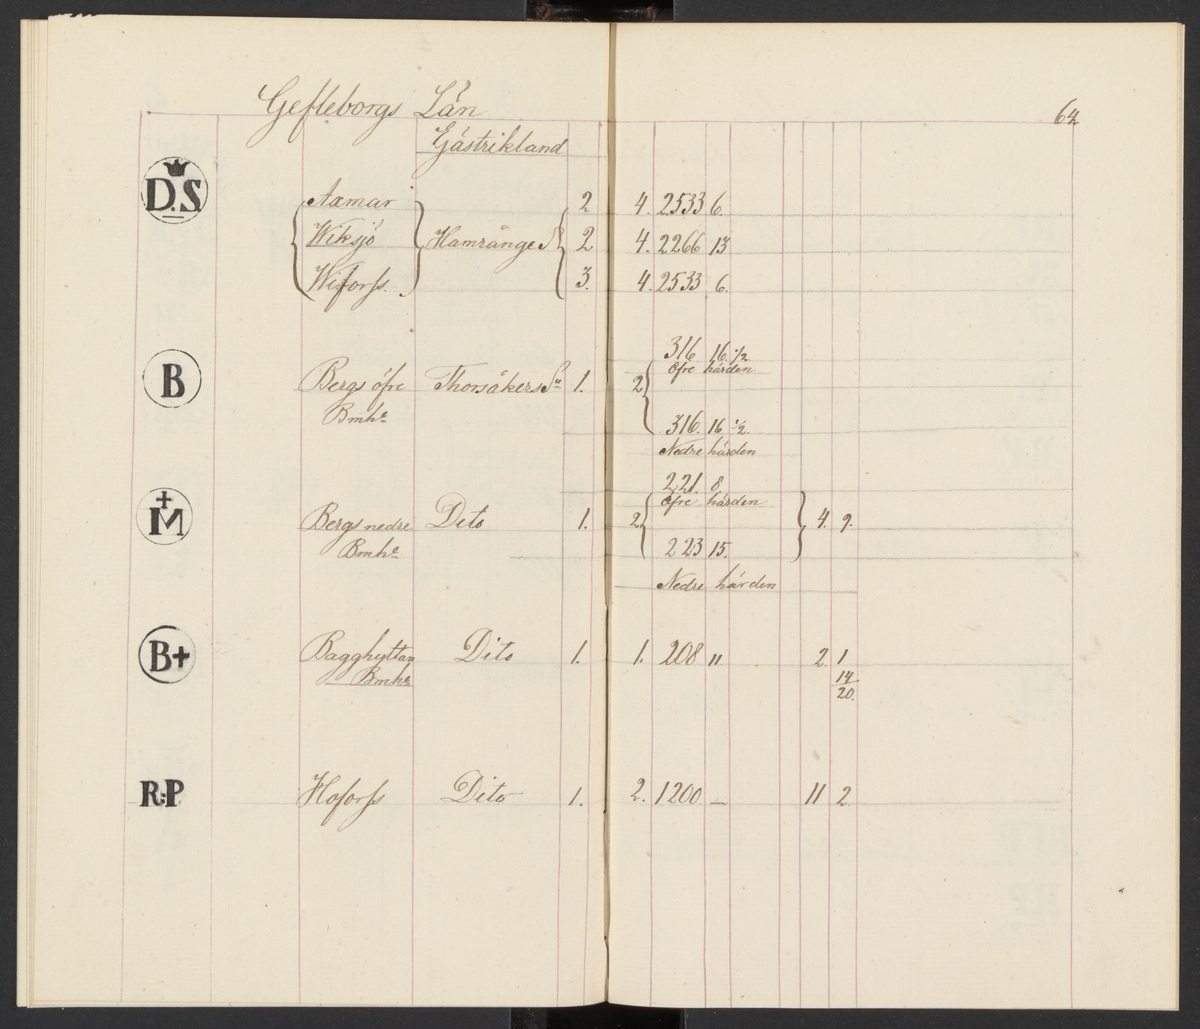 Gefleborgs Län
64
Gästrikland
D.S
Axmar 2 4. 2533 6.
Wiksjö Hamrånge S 2 4. 2266 13
Wiforss. 3. 4. 2533 6.
316 16 1/2
Öfre härden
B Bergs öfre Thorsåkers Sn 1. 2
Bmhr 316. 16 1/2.
Nedre härden
221. 8
Öfre härden
M Bergs nedre Dito 1. 2 4. 9.
Bmhr 223 15.
Nedre härden
B+ Bagghyttan Dito 1. 1. 208 11 2. 1
Bmhr 14
20.
R:P Hoforss Dito 1. 2. 1200 — 11 2